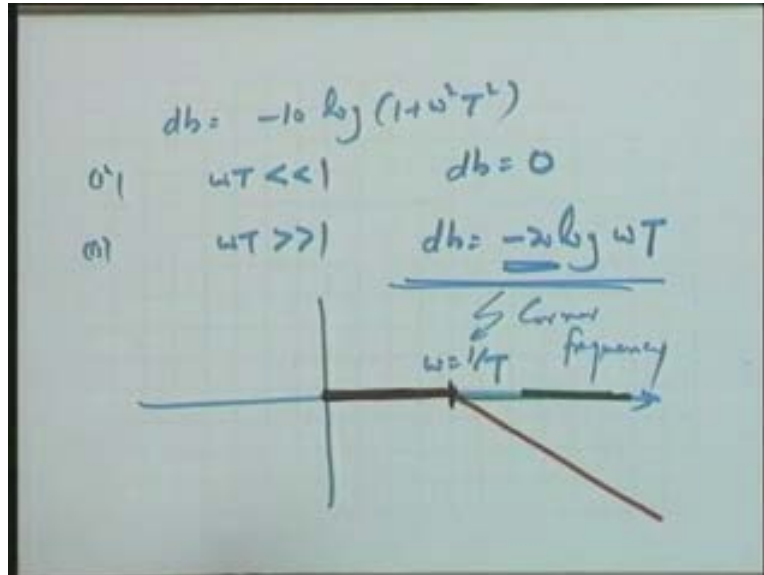 db = -10 log (1+ω²T²)
i) ωT <<1 db = 0
ii) ωT >>1 db = -20 log ωT
Corner
frequency
ω=1/T